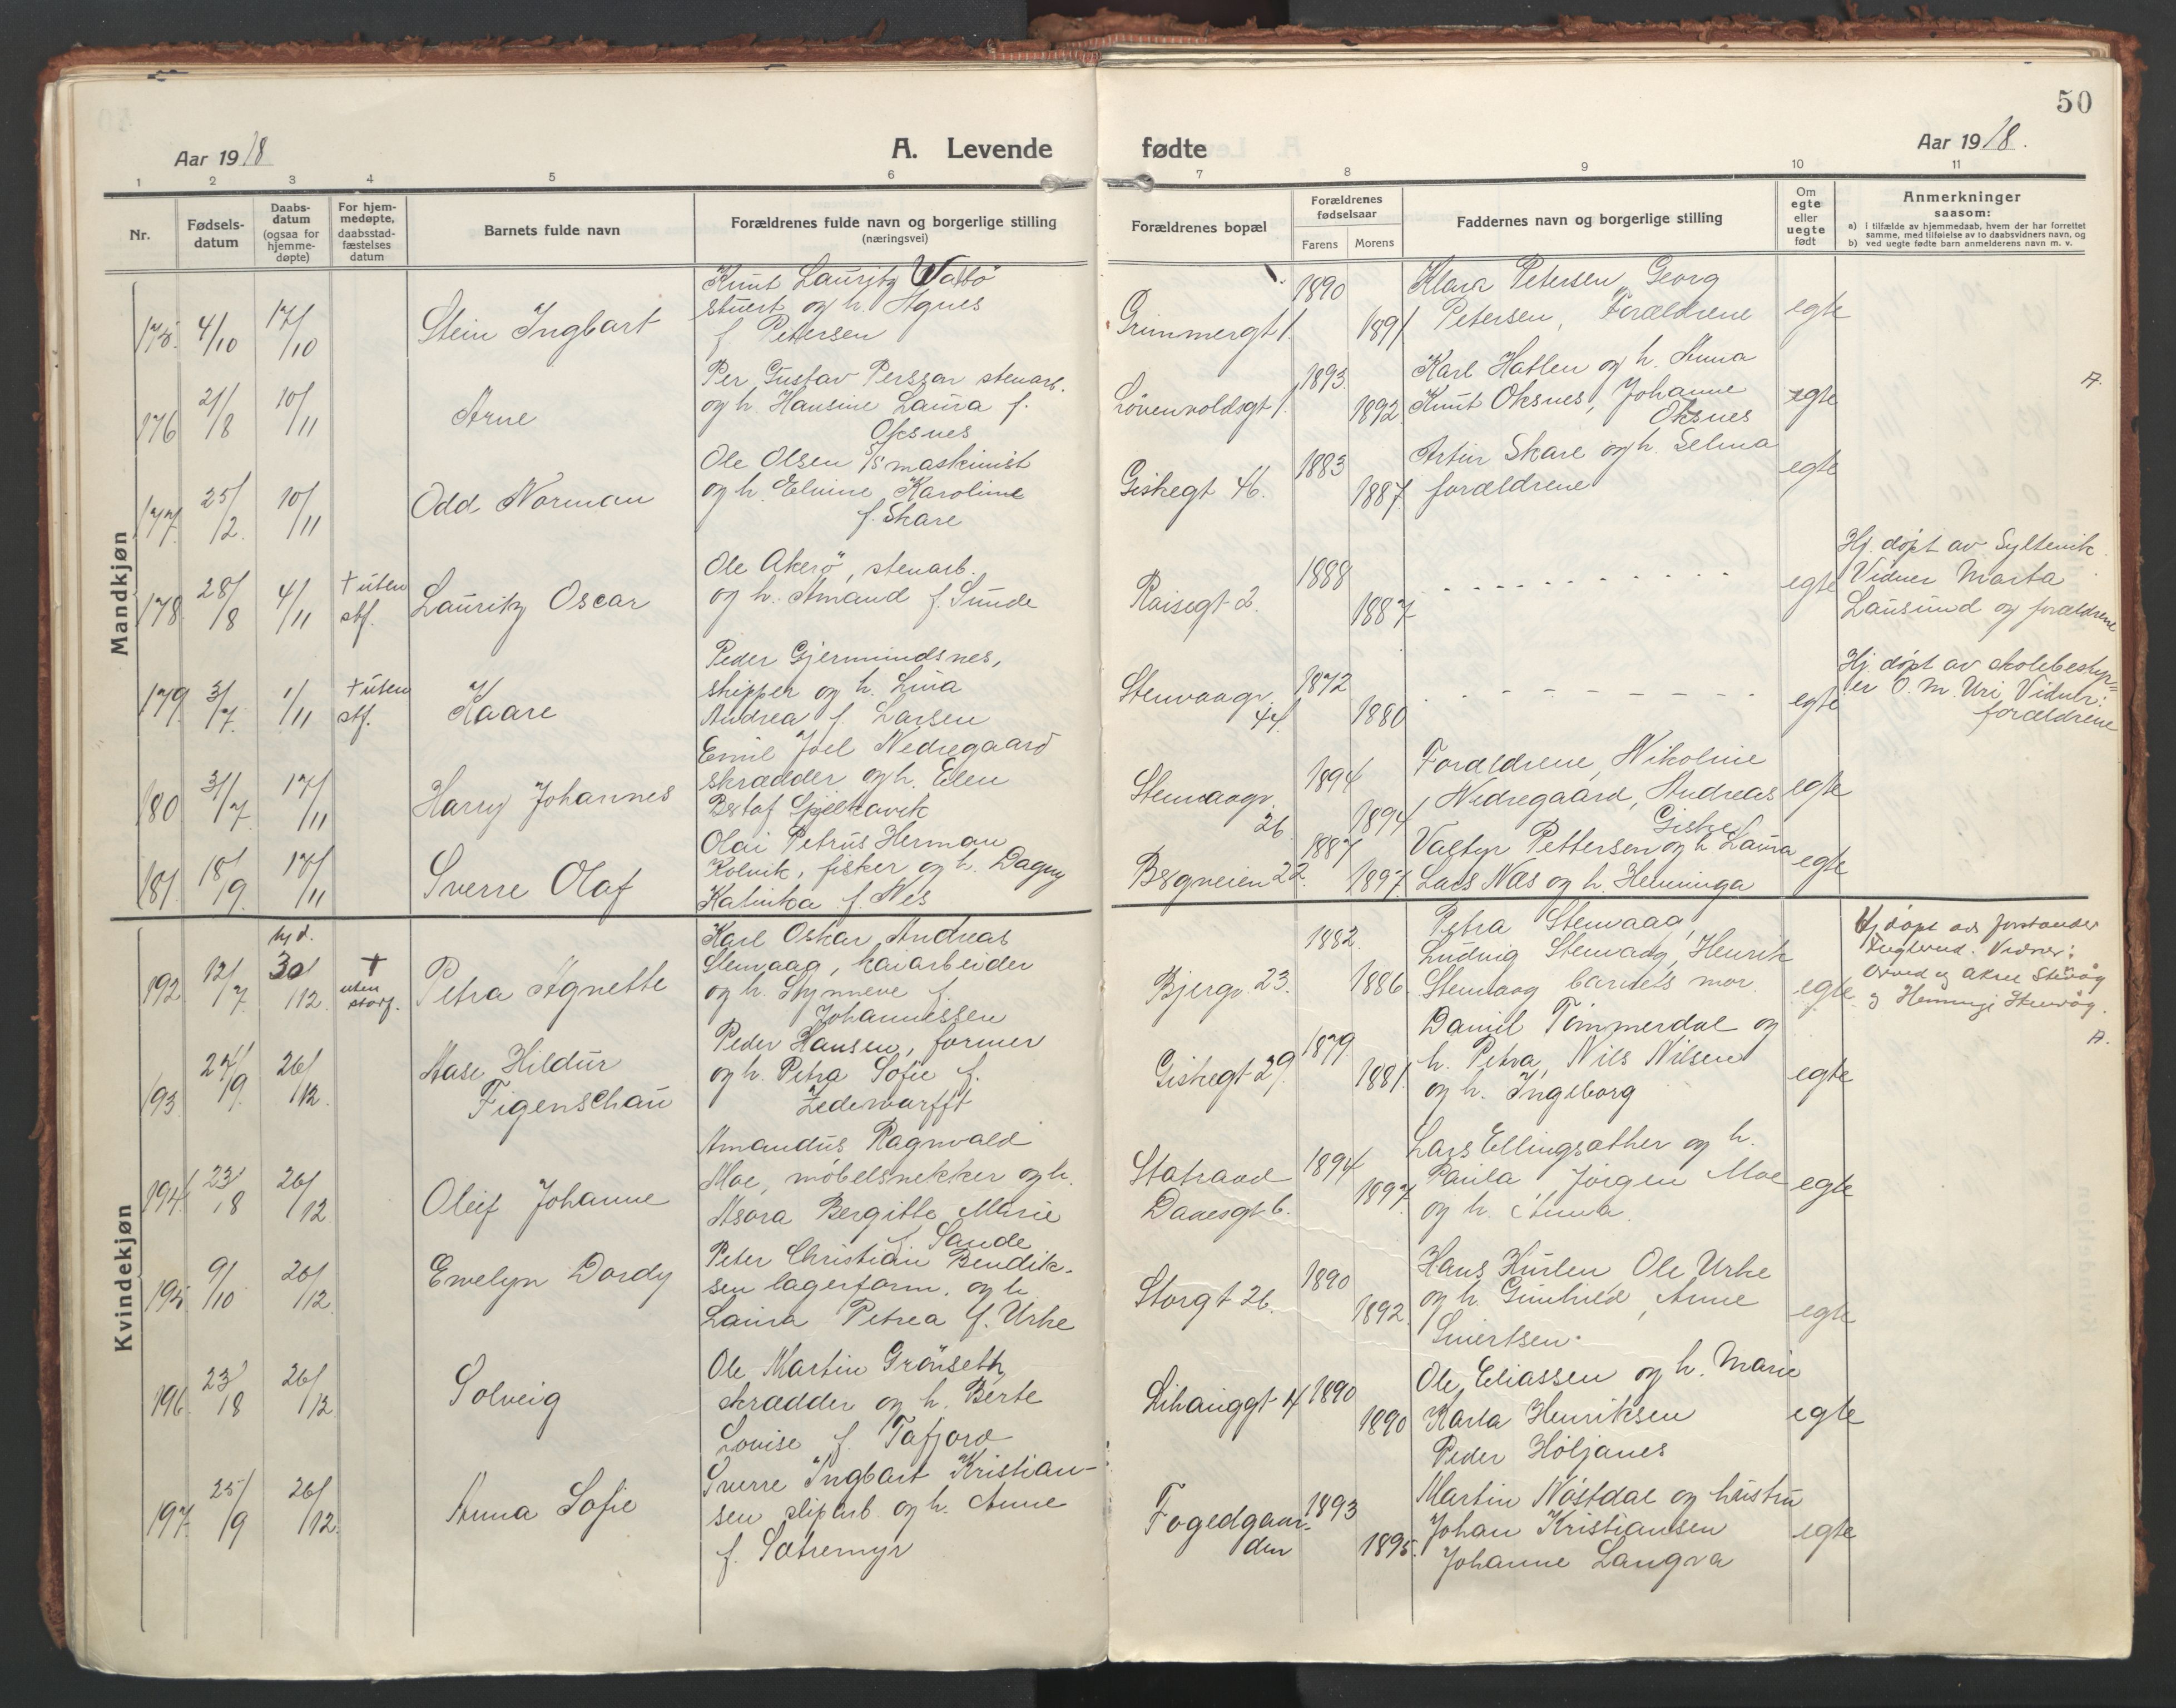 50
Aar 1918
A. Levende
fødte
Aar 1918.
1 2 3 4 5 6 7 8 9 10 11
Nr.
Fødsels-
datum
Daabs-
datum
(ogsaa for
hjemme-
døpte)
For hjem-
medøpte,
daabsstad-
fæstelses
datum
Barnets fulde navn
Forældrenes fulde navn og borgerlige stilling
(næringsvei)
Forældrenes bopæl
Forældrenes
fødselsaar
Farens Morens
Faddernes navn og borgerlige stilling
Om
egte
eller
uegte
født
Anmerkninger
saasom:
a) i tilfælde av hjemmedaab, hvem der har forrettet
samme, med tilføielse av to daabsvidners navn, og
b) ved uegte fødte barn anmelderens navn m. v.
Mandkjøn
175. 4/10 17/10 Stein Ingbart
Knut Lauritz Watsö
stuert og h. Agnes
f. Petersen
Grimmergt 1. 1890 1891
Klara Petersen, Georg
Petersen, Forældrene
egte
176 21/8 10/11 Arne
Per Gustav Persson stenarb.
og h. Hansine Laura f.
Oksnes
Lövenvoldsgt 1. 1893. 1892
Karl Hatlen og h. Anna
Knut Oksnes, Johanne
Oksnes
egte
A.
177. 25/2. 10/11 Odd Norman
Ole Olsen D/S maskinist
og h. Elvine Karoline
f. Skare
Giskegt 46. 1883 1887.
Artur Skare og h. Selma
forældrene
egte
178. 28/8 4/11 † uten stf. Lauritz Oscar
Ole Akerö, stenarb.
og h. Amand f. Sunde
Raisegt 2. 1888 1887
egte
Hj. döpt av Syltevik.
Vidner Marta
Lausund og forældrene
179. 3/7. 1/11 † uten stf. Kaare
Peder Gjermundsnes,
skipper og h. Lina
Andrea f. Larsen
Stenvaagv. 44. 1872 1880
egte
Hj. döpt av skolebestyr=
er O. M. Uri Vidner:
forældrene
180 31/7 17/11 Harry Johannes
Emil Joel Nedregaard
skrædder og h. Elen
Bstaf Spjelkavik
Stenvaagv. 26. 1894 1894
Forældrene, Nikoline
Nedregaard, Andreas
Giske
egte
181. 18/9. 17/11 Sverre Olaf
Olai Petrus Herman
Kolvik, fisker og h. Dagny
Katinka f. Nes
Bergveien 22. 1887 1897
Valtyr Pettersen og h. Laura
Lars Næs og h. Henninga
egte
Kvindekjøn
192 12/7. hj d. 30/12. † uten stadf. Petra Agnette
Karl Oskar Andreas
Stenvaag, kaiarbeider
og h. Synneve f.
Johannessen
Bjergv. 23. 1882. 1886.
Petra Stenvaag,
Ludvig Stenvaag, Henrik
Stenvaag barnets mor.
egte
Hj döpt av forstander
Fuglerud. Vidner:
og Henninge Stenvåg.
193. 27/9. 26/12. Aase Hildur
Figenschau
Peder Hansen, former
og h. Petra Sofie f.
Zedewarfft
Giskegt 29. 1879. 1881.
Daniel Tömmerdal og
h. Petra, Nils Nilsen
og h. Ingeborg
egte
A.
194. 23/8 26/12 Oleif Johanne
Amandus Ragnvald
Moe, möbelsnekker og h.
Asora Bergitte Marie
f. Sande
Statsraad
Davesgt 6. 1894 1897.
Lars Ellingsæther og h.
Paula Jörgen Moe
og h. Anna.
egte
195 9/10 26/12. Ewelyn Dordy
Peter Christian Bendik-
sen lagerform. og h.
Laura Petrea f. Urke
Storgt 26. 1890 1892.
Hans Hurlen Ole Urke
og h. Gunhild, Anne
Sivertsen.
egte
196. 23/8 26/12. Solveig
Ole Martin Grönseth
skrædder og h. Berte
Lovise f. Tafjord
Lihauggt 4 1890 1890
Ole Eliassen og h. Marie
Karla Henriksen
Peder Höljanes
egte
197. 25/9 26/12. Anna Sofie
Sverre Ingbart Kristian-
sen sliparb. og h. Anne
f. Sætremyr
Fogedgaar-
den 1893 1895.
Martin Nöstdal og hustru
Johan Kristiansen
Johanne Langva
egte